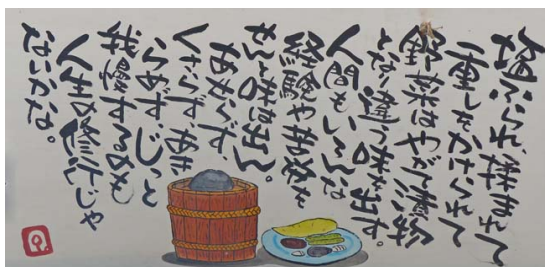 塩ふられ、揉まれて
重しをかけられて
野菜はやがて漬物
となり違う味を出す。
人間もいろんな
経験や苦労を
せんと味は出ん。
あせらず
くさらず あき
らめず じっと
我慢するのも
人生の修行じゃ
ないかな。